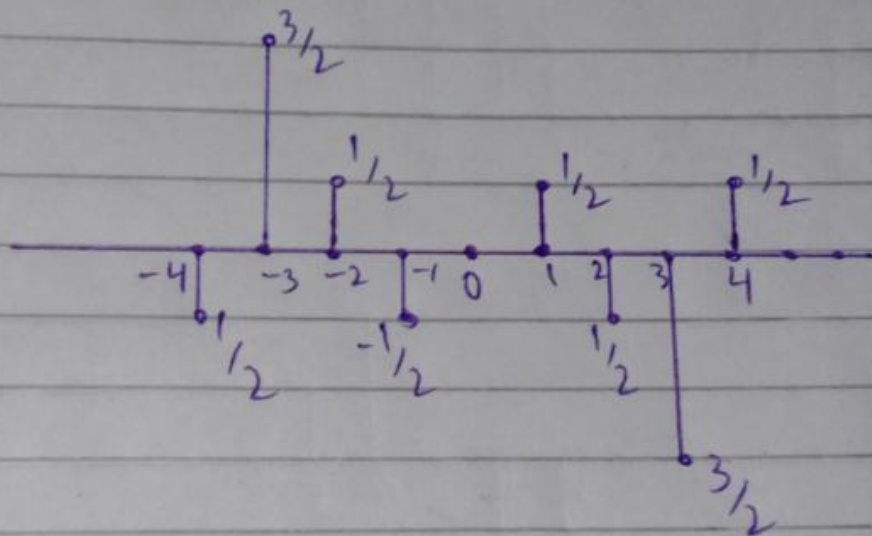 3/2
1/2 1/2 1/2
-4 -3 -2 -1 0 1 2 3 4
1/2 -1/2 1/2
3/2